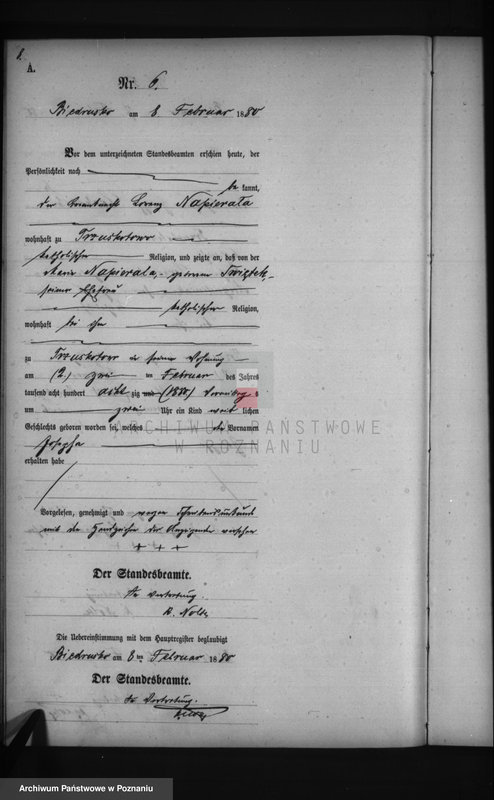 8.
A.
Nr. 6.
Biedrusko am 8 Februar 1880
Vor dem unterzeichneten Standesbeamten erschien heute, der
Persönlichkeit nach
be kannt,
der Lorenz Napierala
wohnhaft zu
katholischer Religion, und zeigte an, daß von der
Maria Napierala, geboren Swiętek,
seiner Ehefrau
katholischer Religion,
wohnhaft bei ihm
zu in seiner Wohnung
am (2.) zwei ten Februar des Jahres
tausend acht hundert achtzig und (1880) Vormittags
um zwei Uhr ein Kind weib lichen
Geschlechts geboren worden sei, welches den Vornamen
Josepha
erhalten habe
Vorgelesen, genehmigt und wegen Schreibensunkunde
mit den Handzeichen des Anzeigenden versehen
+ + +
Der Standesbeamte.
In Vertretung.
Die Uebereinstimmung mit dem Hauptregister beglaubigt
Biedrusko am 8ten Februar 1880
Der Standesbeamte.
In Vertretung.
ARCHIWUM PAŃSTWOWE
W POZNANIU
Archiwum Państwowe w Poznaniu